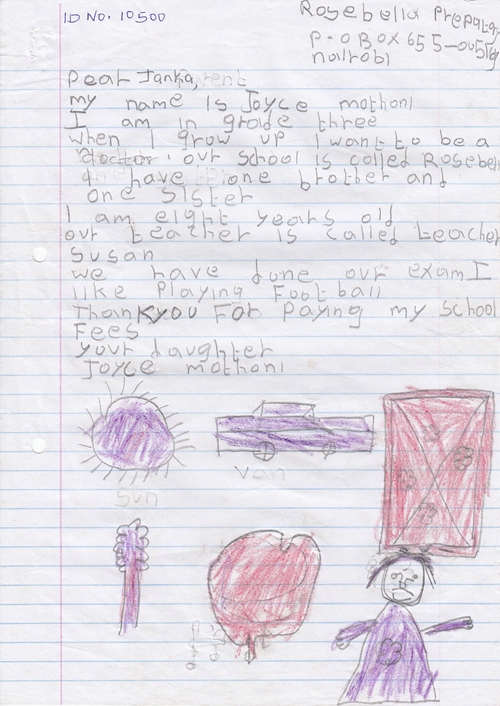 ID No. 10500
Rosebella Preparatory
P.O BOX 655-00519
nairobi
Dear Janka,
my name is Joyce mothoni
I am in grade three
when I grow up I want to be a
doctor. our school is called Rosebell
I have one brother and
one sister
I am eight years old
our teacher is called teacher
Susan
we have done our exam I
like Playing Football
Thankyou For paying my school
Fees
your daughter
Joyce mothoni
van
Sun